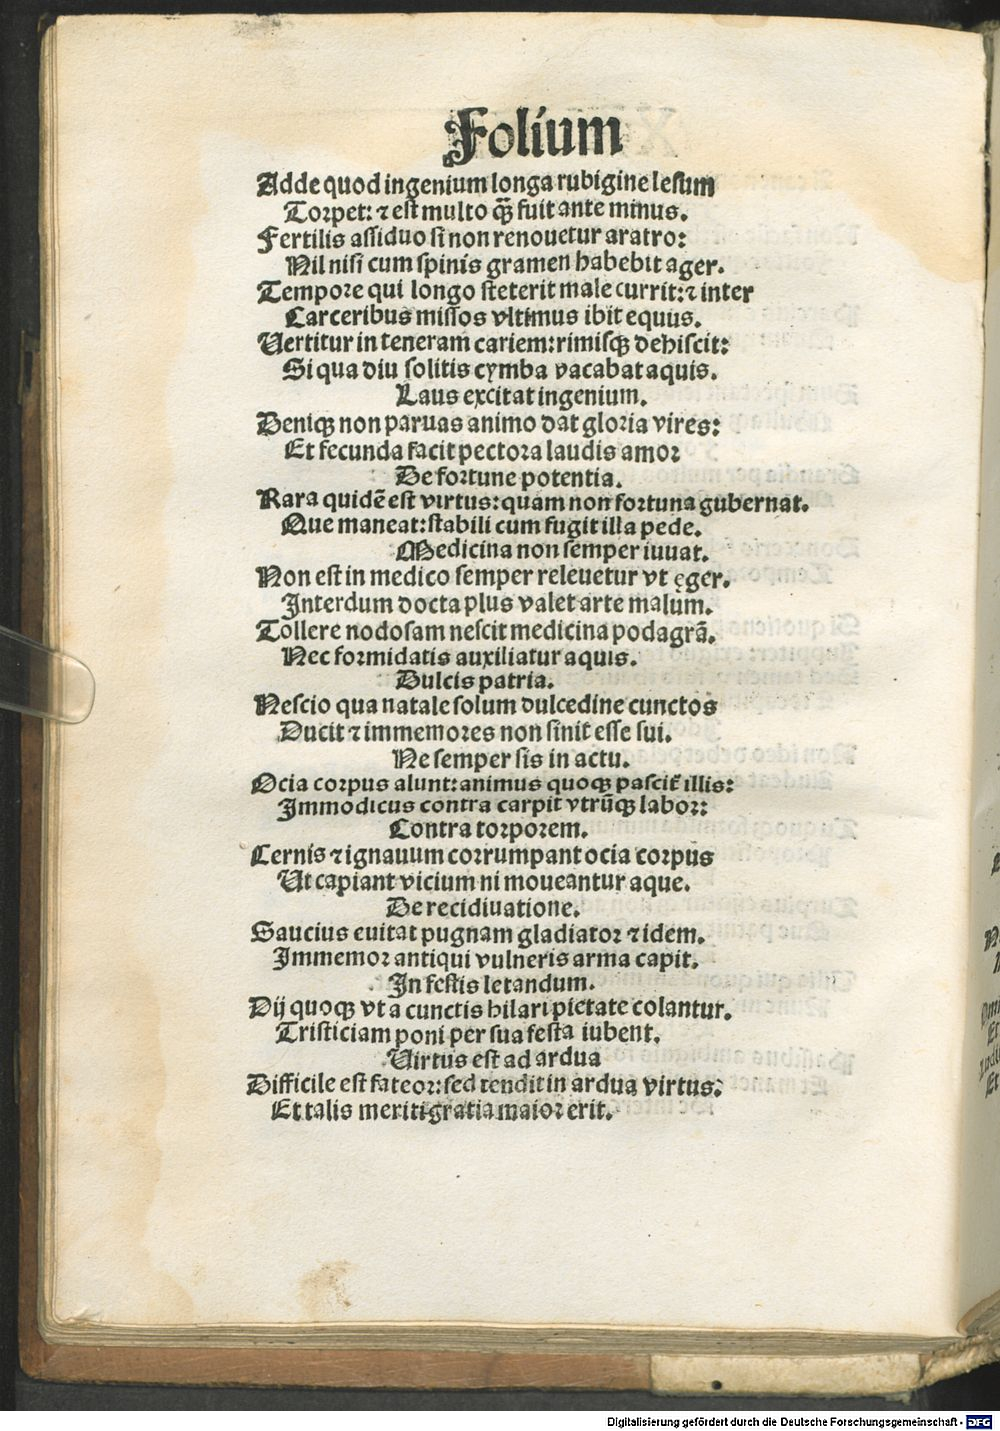 Folium
Adde quod ingenium longa rubigine lesum
Torpet: ⁊ est multo q̃ꝫ fuit ante minus.
Fertilis assiduo si non renouetur aratro:
Nil nisi cum spinis gramen habebit ager.
Tempore qui longo steterit male currit: ⁊ inter
Carceribus missos vltimus ibit equus.
Uertitur in teneram cariem: rimisqꝫ dehiscit:
Si qua diu solitis cymba vacabat aquis.
Laus excitat ingenium.
Deniqꝫ non paruas animo dat gloria vires:
Et fecunda facit pectora laudis amor
De fortune potentia.
Rara quidē est virtus: quam non fortuna gubernat.
Que maneat: stabili cum fugit illa pede.
Medicina non semper iuuat.
Non est in medico semper releuetur vt ęger.
Interdum docta plus valet arte malum.
Tollere nodosam nescit medicina podagrā.
Nec formidatis auxiliatur aquis.
Dulcis patria.
Nescio qua natale solum dulcedine cunctos
Ducit ⁊ immemores non sinit esse sui.
Ne semper sis in actu.
Ocia corpus alunt: animus quoqꝫ pascit̃ illis:
Immodicus contra carpit vtrūqꝫ labor:
Contra torporem.
Cernis ⁊ ignauum corrumpant ocia corpus
Ut capiant vicium ni moueantur aque.
De recidiuatione.
Saucius euitat pugnam gladiator ⁊ idem.
Immemor antiqui vulneris arma capit.
In festis letandum.
Dij quoqꝫ vt a cunctis hilari pietate colantur.
Tristiciam poni per sua festa iubent.
Uirtus est ad ardua
Difficile est fateor: sed tendit in ardua virtus:
Et talis meriti gratia maior erit.
Digitalisierung gefördert durch die Deutsche Forschungsgemeinschaft - DFG